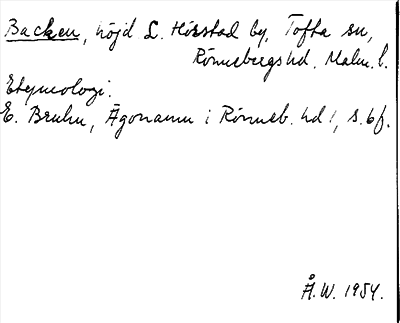 Backen, höjd L. Hösstad by, Tofta sn,
Rönnebergs hd. Malm. l.
Etymologi.
E. Bruhn, Ägonamn i Rönneb. hd!, s. 6 f.
Å.W. 1954.